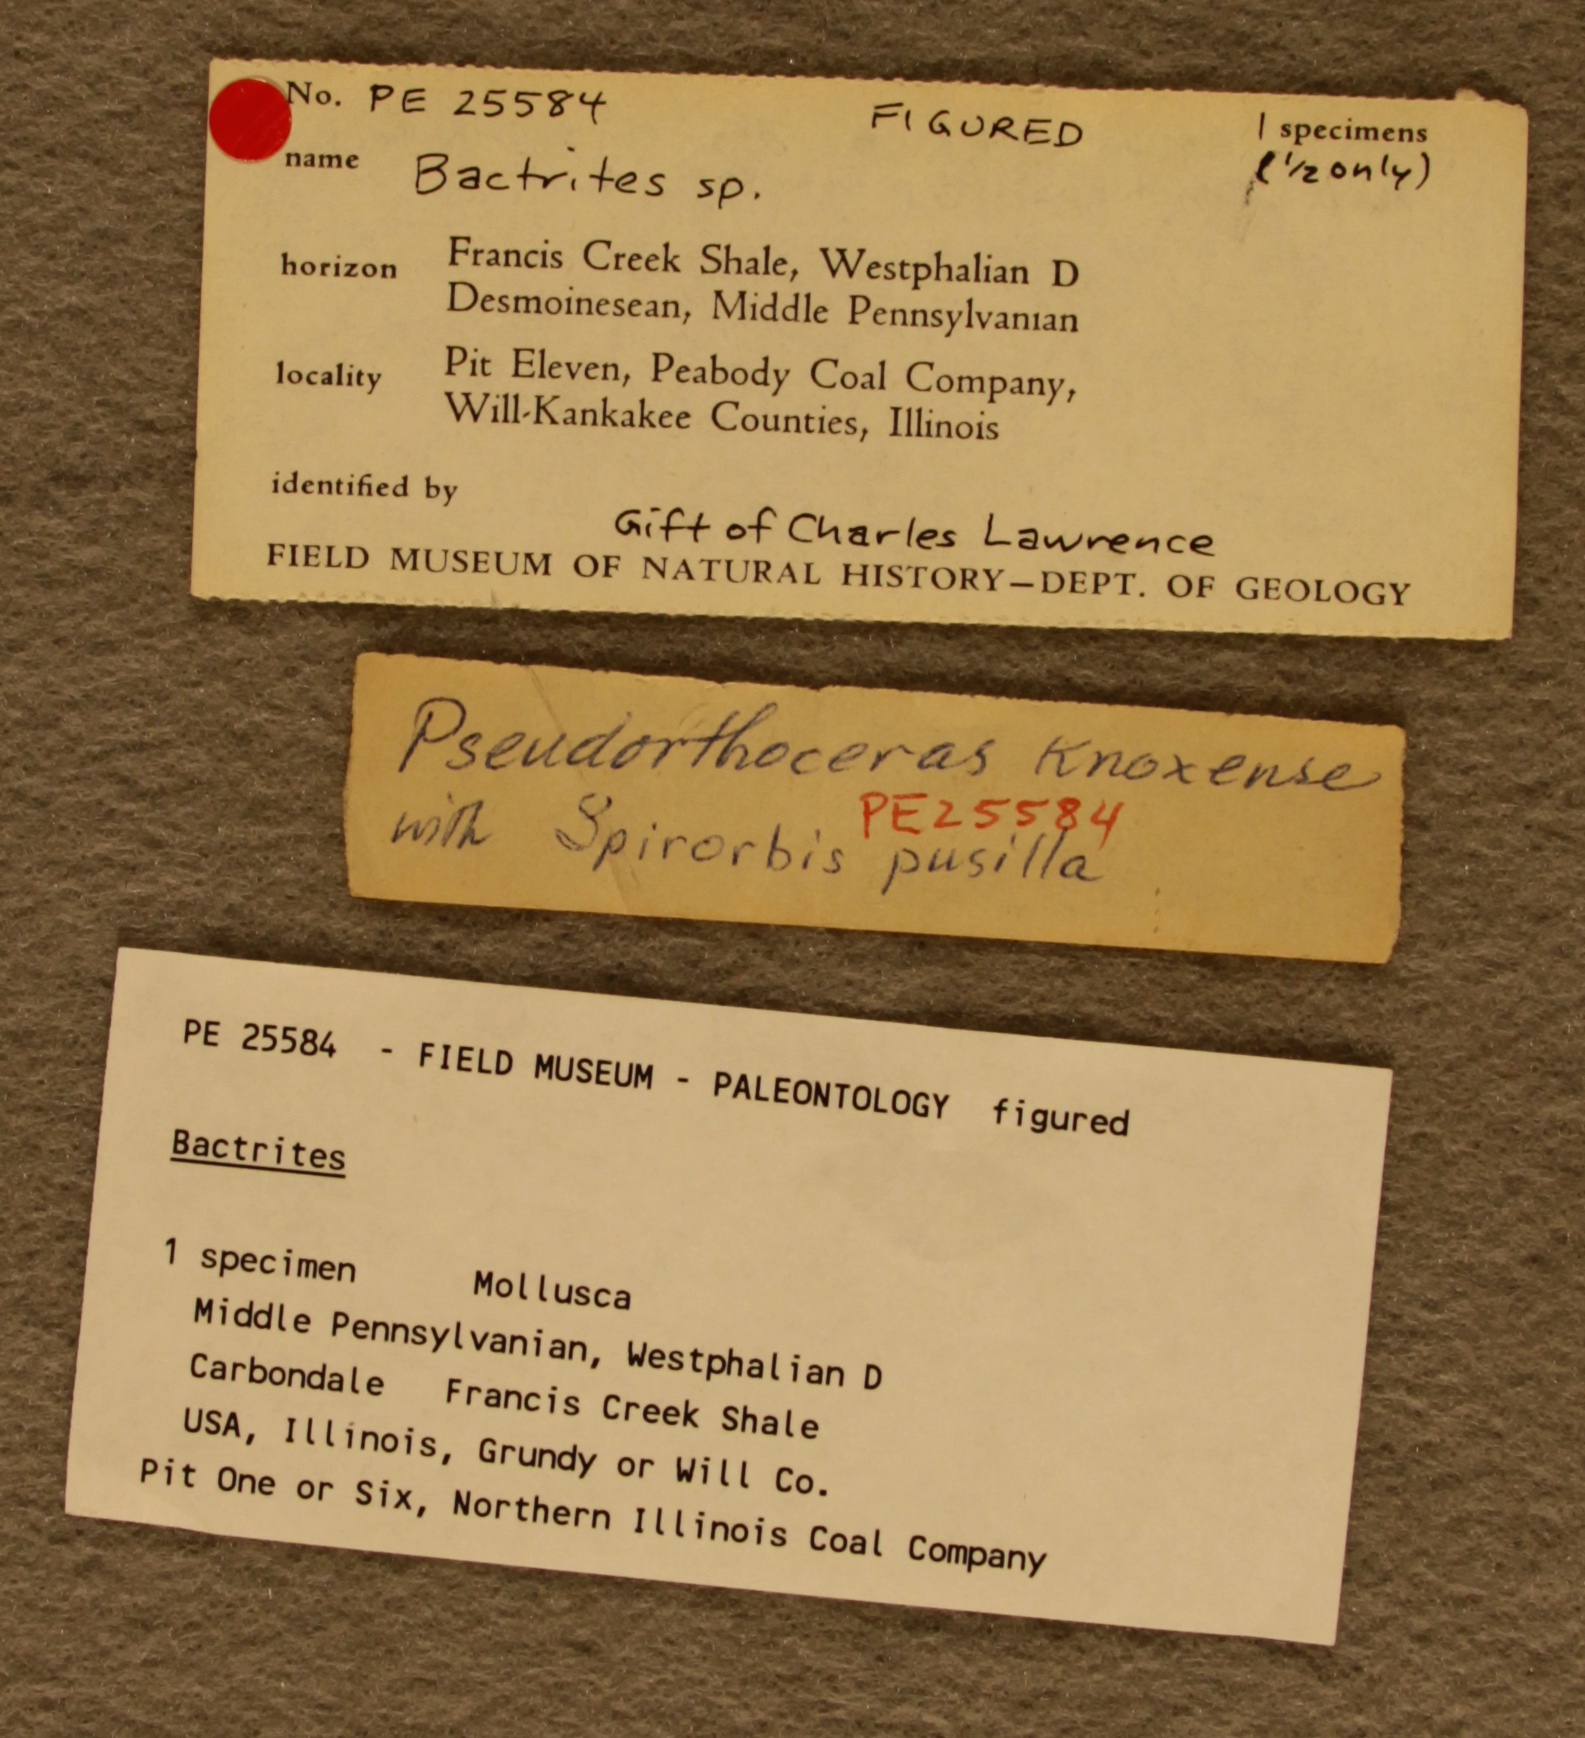 No. PE 25584 FIGURED 1 specimens
name Bactrites sp. (1/2 only)
horizon Francis Creek Shale, Westphalian D
Desmoinesean, Middle Pennsylvanian
locality Pit Eleven, Peabody Coal Company,
Will-Kankakee Counties, Illinois
identified by
Gift of Charles Lawrence
FIELD MUSEUM OF NATURAL HISTORY—DEPT. OF GEOLOGY
Pseudorthoceras Knoxense
PE25584
with Spirorbis pusilla
PE 25584 - FIELD MUSEUM - PALEONTOLOGY figured
Bactrites
1 specimen Mollusca
Middle Pennsylvanian, Westphalian D
Carbondale Francis Creek Shale
USA, Illinois, Grundy or Will Co.
Pit One or Six, Northern Illinois Coal Company